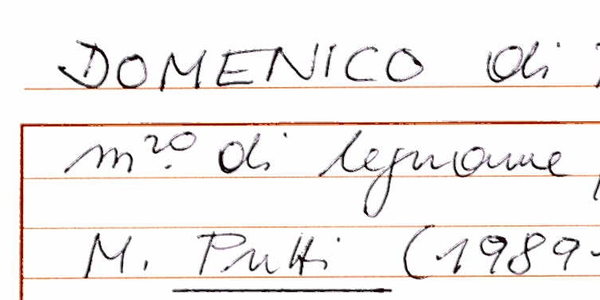 DOMENICO di
m.ro di legname
M. Putti (1989-